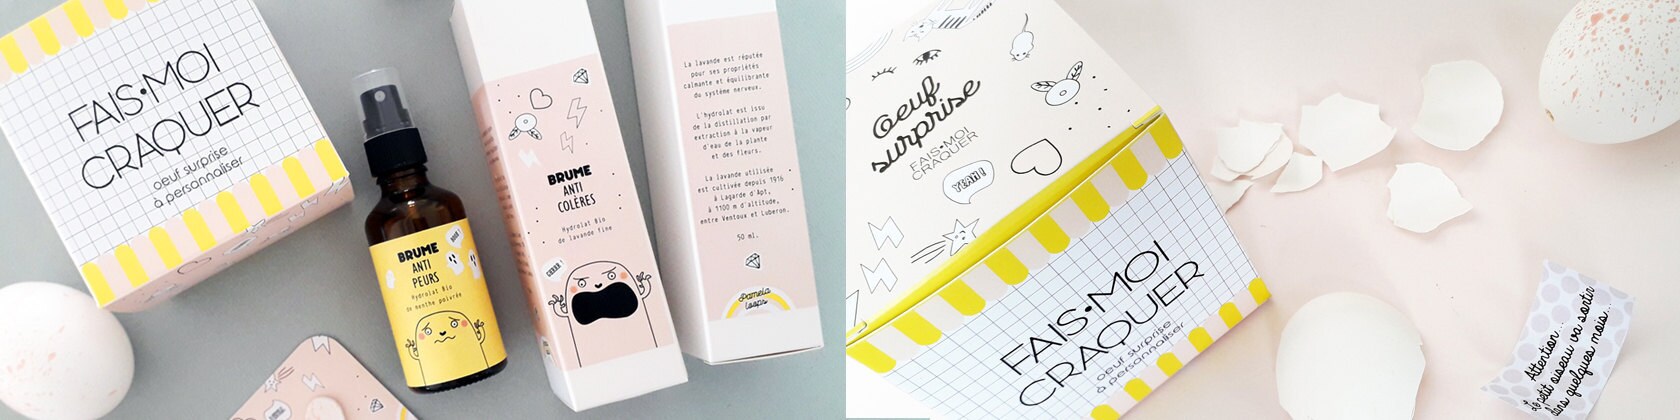 FAIS•MOI
CRAQUER
oeuf surprise
à personnaliser
BRUME
ANTI
PEURS
Hydrolat Bio
de menthe poivrée
BRUME
ANTI
COLÈRES
Hydrolat Bio
de lavande fine
GRRR !
La lavande est réputée
pour ses propriétés
calmante et équilibrante
du système nerveux.
L'hydrolat est issu
de la distillation par
extraction à la vapeur
d'eau de la plante
et des fleurs.
La lavande utilisée
est cultivée depuis 1916
à Lagarde d'Apt,
à 1100 m d'altitude,
entre Ventoux et Luberon.
50 ml.
Pamela
loops
Oeuf
surprise
FAIS•MOI
CRAQUER
YEAH !
FAIS•MOI
CRAQUER
oeuf surprise
à personnaliser
Attention...
Le petit oiseau va sortir
dans quelques mois...